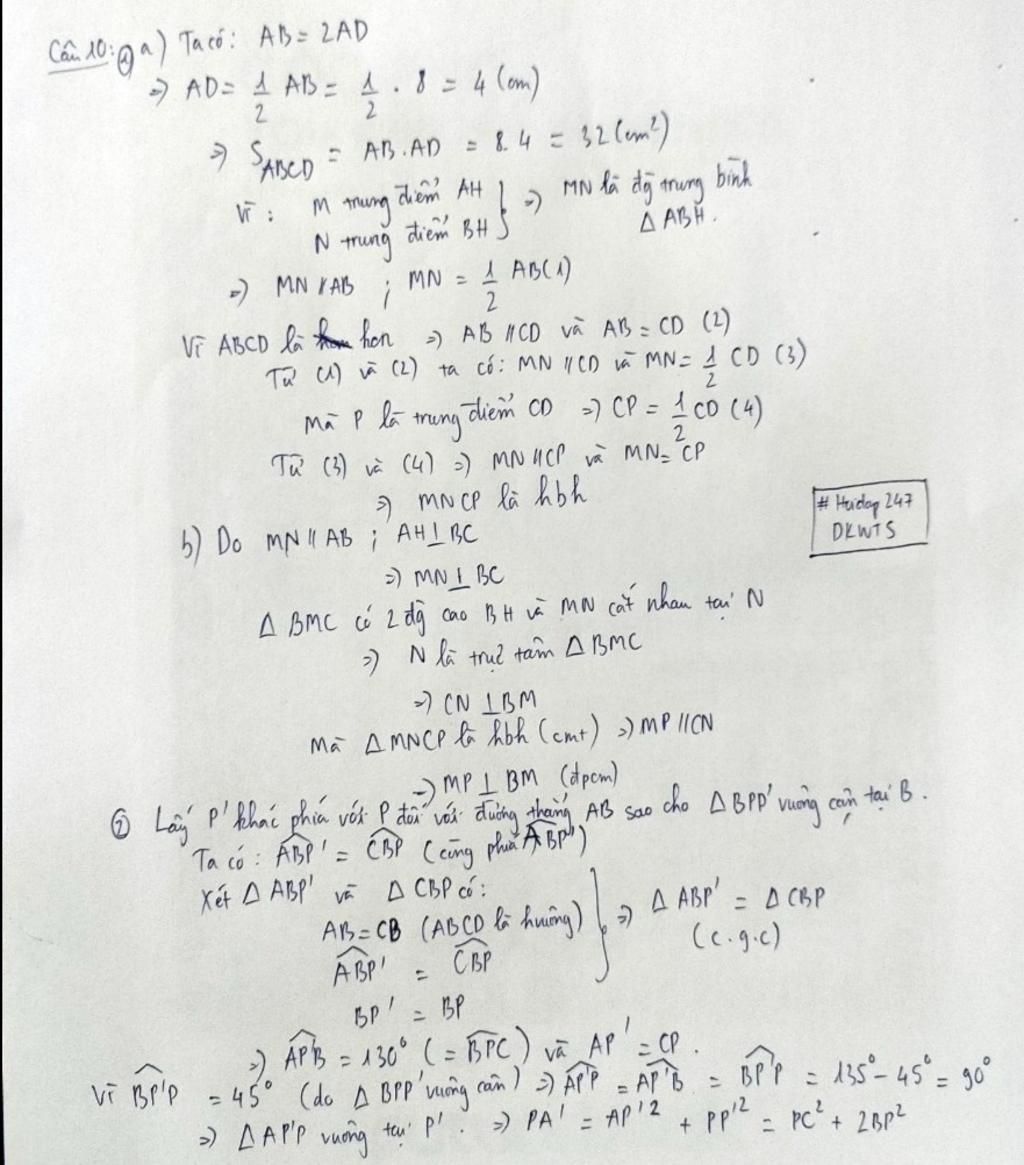 Câu 10: ① a) Ta có: AB = 2AD
=> AD = 1/2 AB = 1/2 . 8 = 4 (cm)
=> S_ABCD = AB.AD = 8.4 = 32 (cm²)
Vì : M trung điểm AH } => MN là đg trung bình
N trung điểm BH ΔABH.
=> MN // AB ; MN = 1/2 AB (1)
Vì ABCD là hcn => AB // CD và AB = CD (2)
Từ (1) và (2) ta có: MN // CD và MN = 1/2 CD (3)
Mà P là trung điểm CD => CP = 1/2 CD (4)
Từ (3) và (4) => MN // CP và MN = CP
=> MNCP là hbh
# Hoidap 247
DKWTS
b) Do MN // AB ; AH ⊥ BC
=> MN ⊥ BC
Δ BMC có 2 đg cao BH và MN cắt nhau tại N
=> N là trực tâm Δ BMC
=> CN ⊥ BM
Mà Δ MNCP là hbh (cmt) => MP // CN
=> MP ⊥ BM (đpcm)
② Lấy P' khác phía với P đối với đường thẳng AB sao cho Δ BPP' vuông cân tại B.
Ta có: ABP' = CBP (cùng phụ ABP')
Xét Δ ABP' và Δ CBP có:
AB = CB (ABCD là hvuông) } => Δ ABP' = Δ CBP
ABP' = CBP (c.g.c)
BP' = BP
=> AP'B = 130° (= BPC) và AP' = CP.
Vì BP'P = 45° (do Δ BPP' vuông cân) => AP'P = AP'B = BP'P = 135° - 45° = 90°
=> Δ AP'P vuông tại P'. => PA' = AP'² + PP'² = PC² + 2BP²